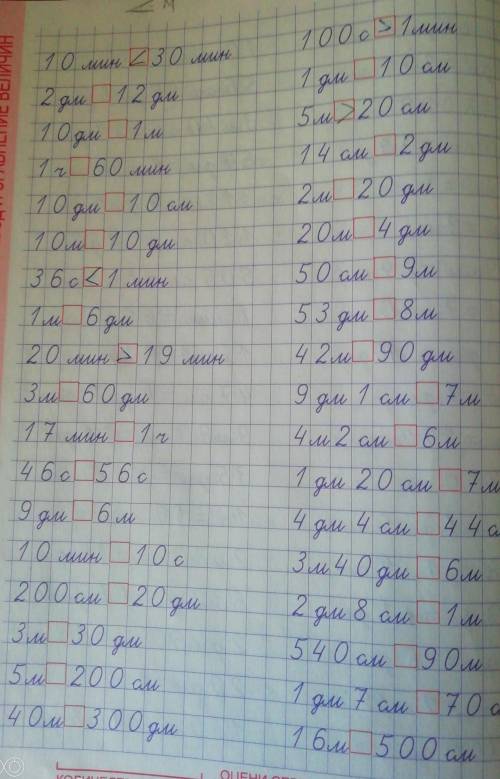 < м
10 мин < 30 мин
2 дм □ 12 дм
10 дм □ 1 м
1 ч □ 60 мин
10 дм □ 10 см
10 м □ 10 дм
36 с < 1 мин
1 м □ 6 дм
20 мин > 19 мин
3 м □ 60 дм
17 мин □ 1 ч
46 с □ 56 с
9 дм □ 6 м
10 мин □ 10 с
200 см □ 20 дм
3 м □ 30 дм
5 м □ 200 см
40 м □ 300 дм
100 с > 1 мин
1 дм □ 10 см
5 м > 20 см
14 см □ 2 дм
2 м □ 20 дм
20 м □ 4 дм
50 см □ 9 м
53 дм □ 8 м
42 м □ 90 дм
9 дм 1 см □ 7 м
4 м 2 см □ 6 м
1 дм 20 см □ 7 м
4 дм 4 см □ 44 с
3 м 40 дм □ 6 м
2 дм 8 см □ 1 м
540 см □ 90 м
1 дм 7 см □ 70 с
16 м □ 500 см
ВЕЛИЧИН